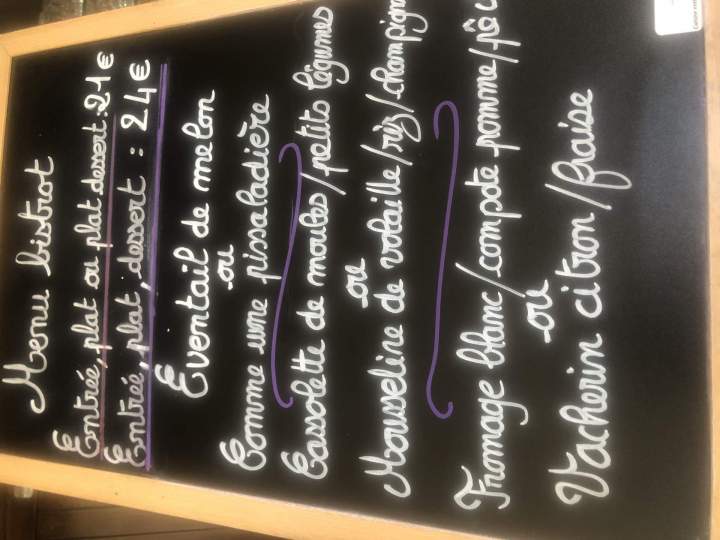 Menu bistrot
Entrée, plat ou plat dessert : 21€
Entrée, plat, dessert : 24€
Eventail de melon
ou
Comme une pissaladière
Cassolette de moules/petits légumes
ou
Mousseline de volaille/riz/champign
Fromage blanc/compote pomme/pê
ou
Vacherin citron/fraise